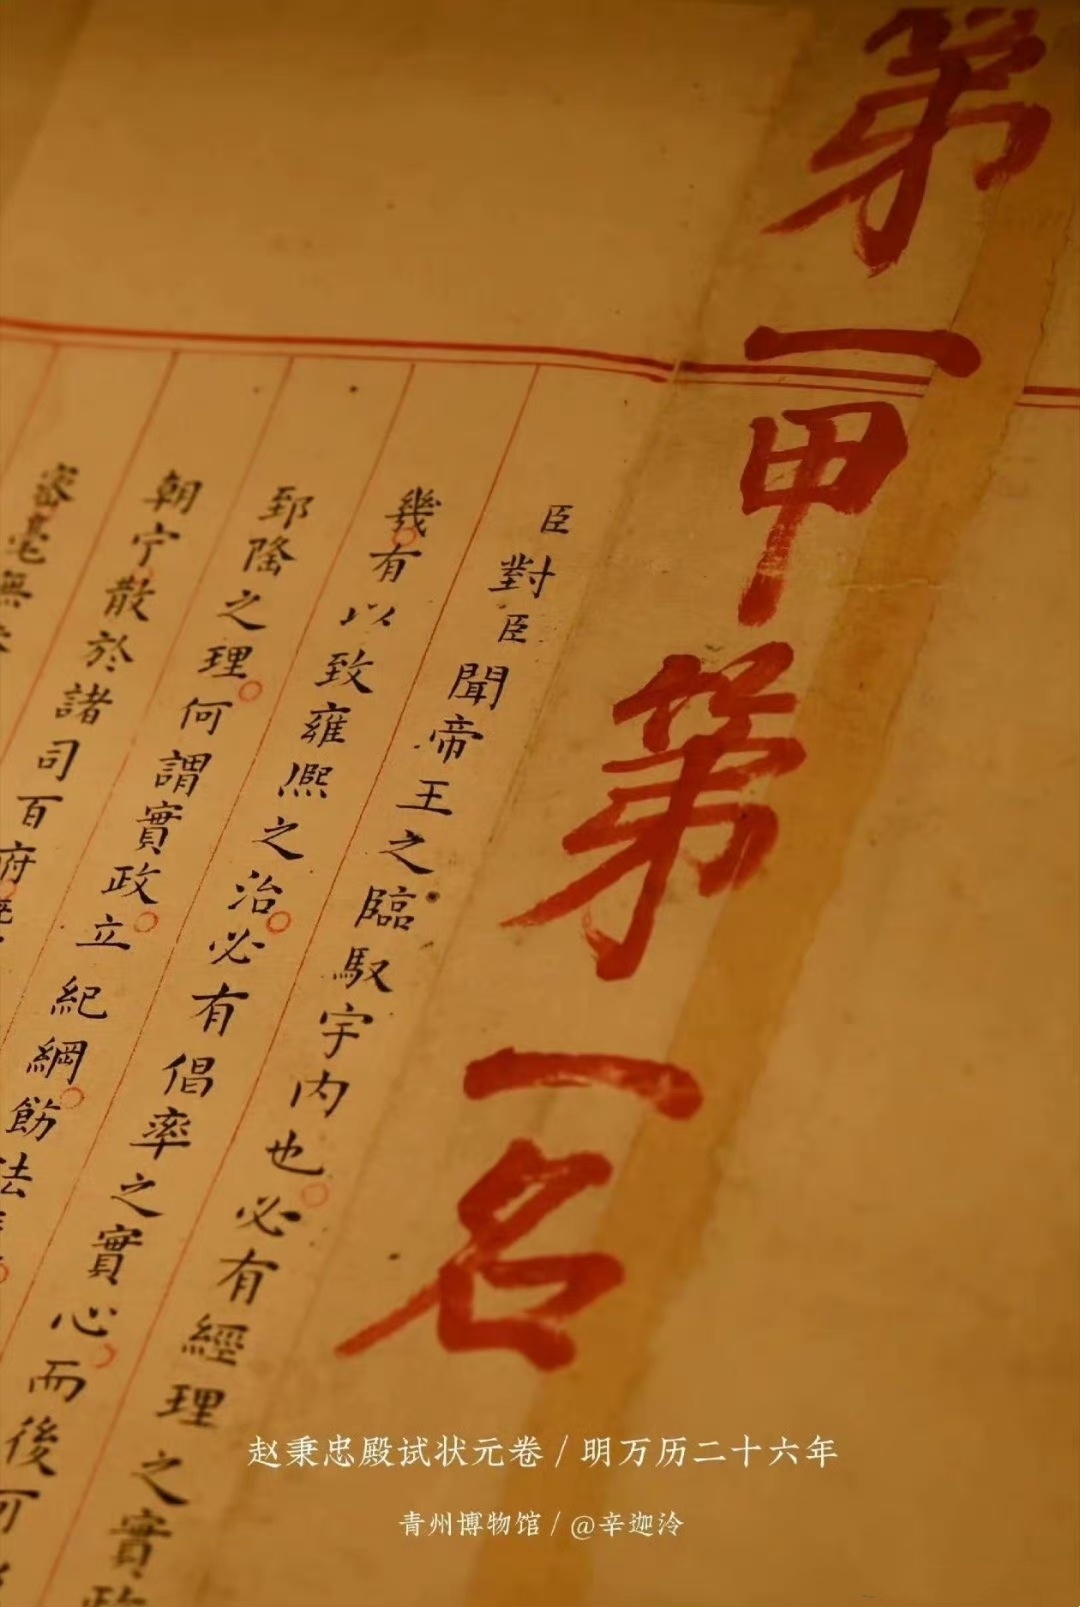 第一甲第一名
臣對臣聞帝王之臨馭宇内也必有經理之實政
幾有以致雍熈之治必有倡率之實心而後可
郅隆之理何謂實政立紀綱飭法
朝宁散於諸司百府
密毫無
赵秉忠殿试状元卷 / 明万历二十六年
青州博物馆 / @辛迦泠